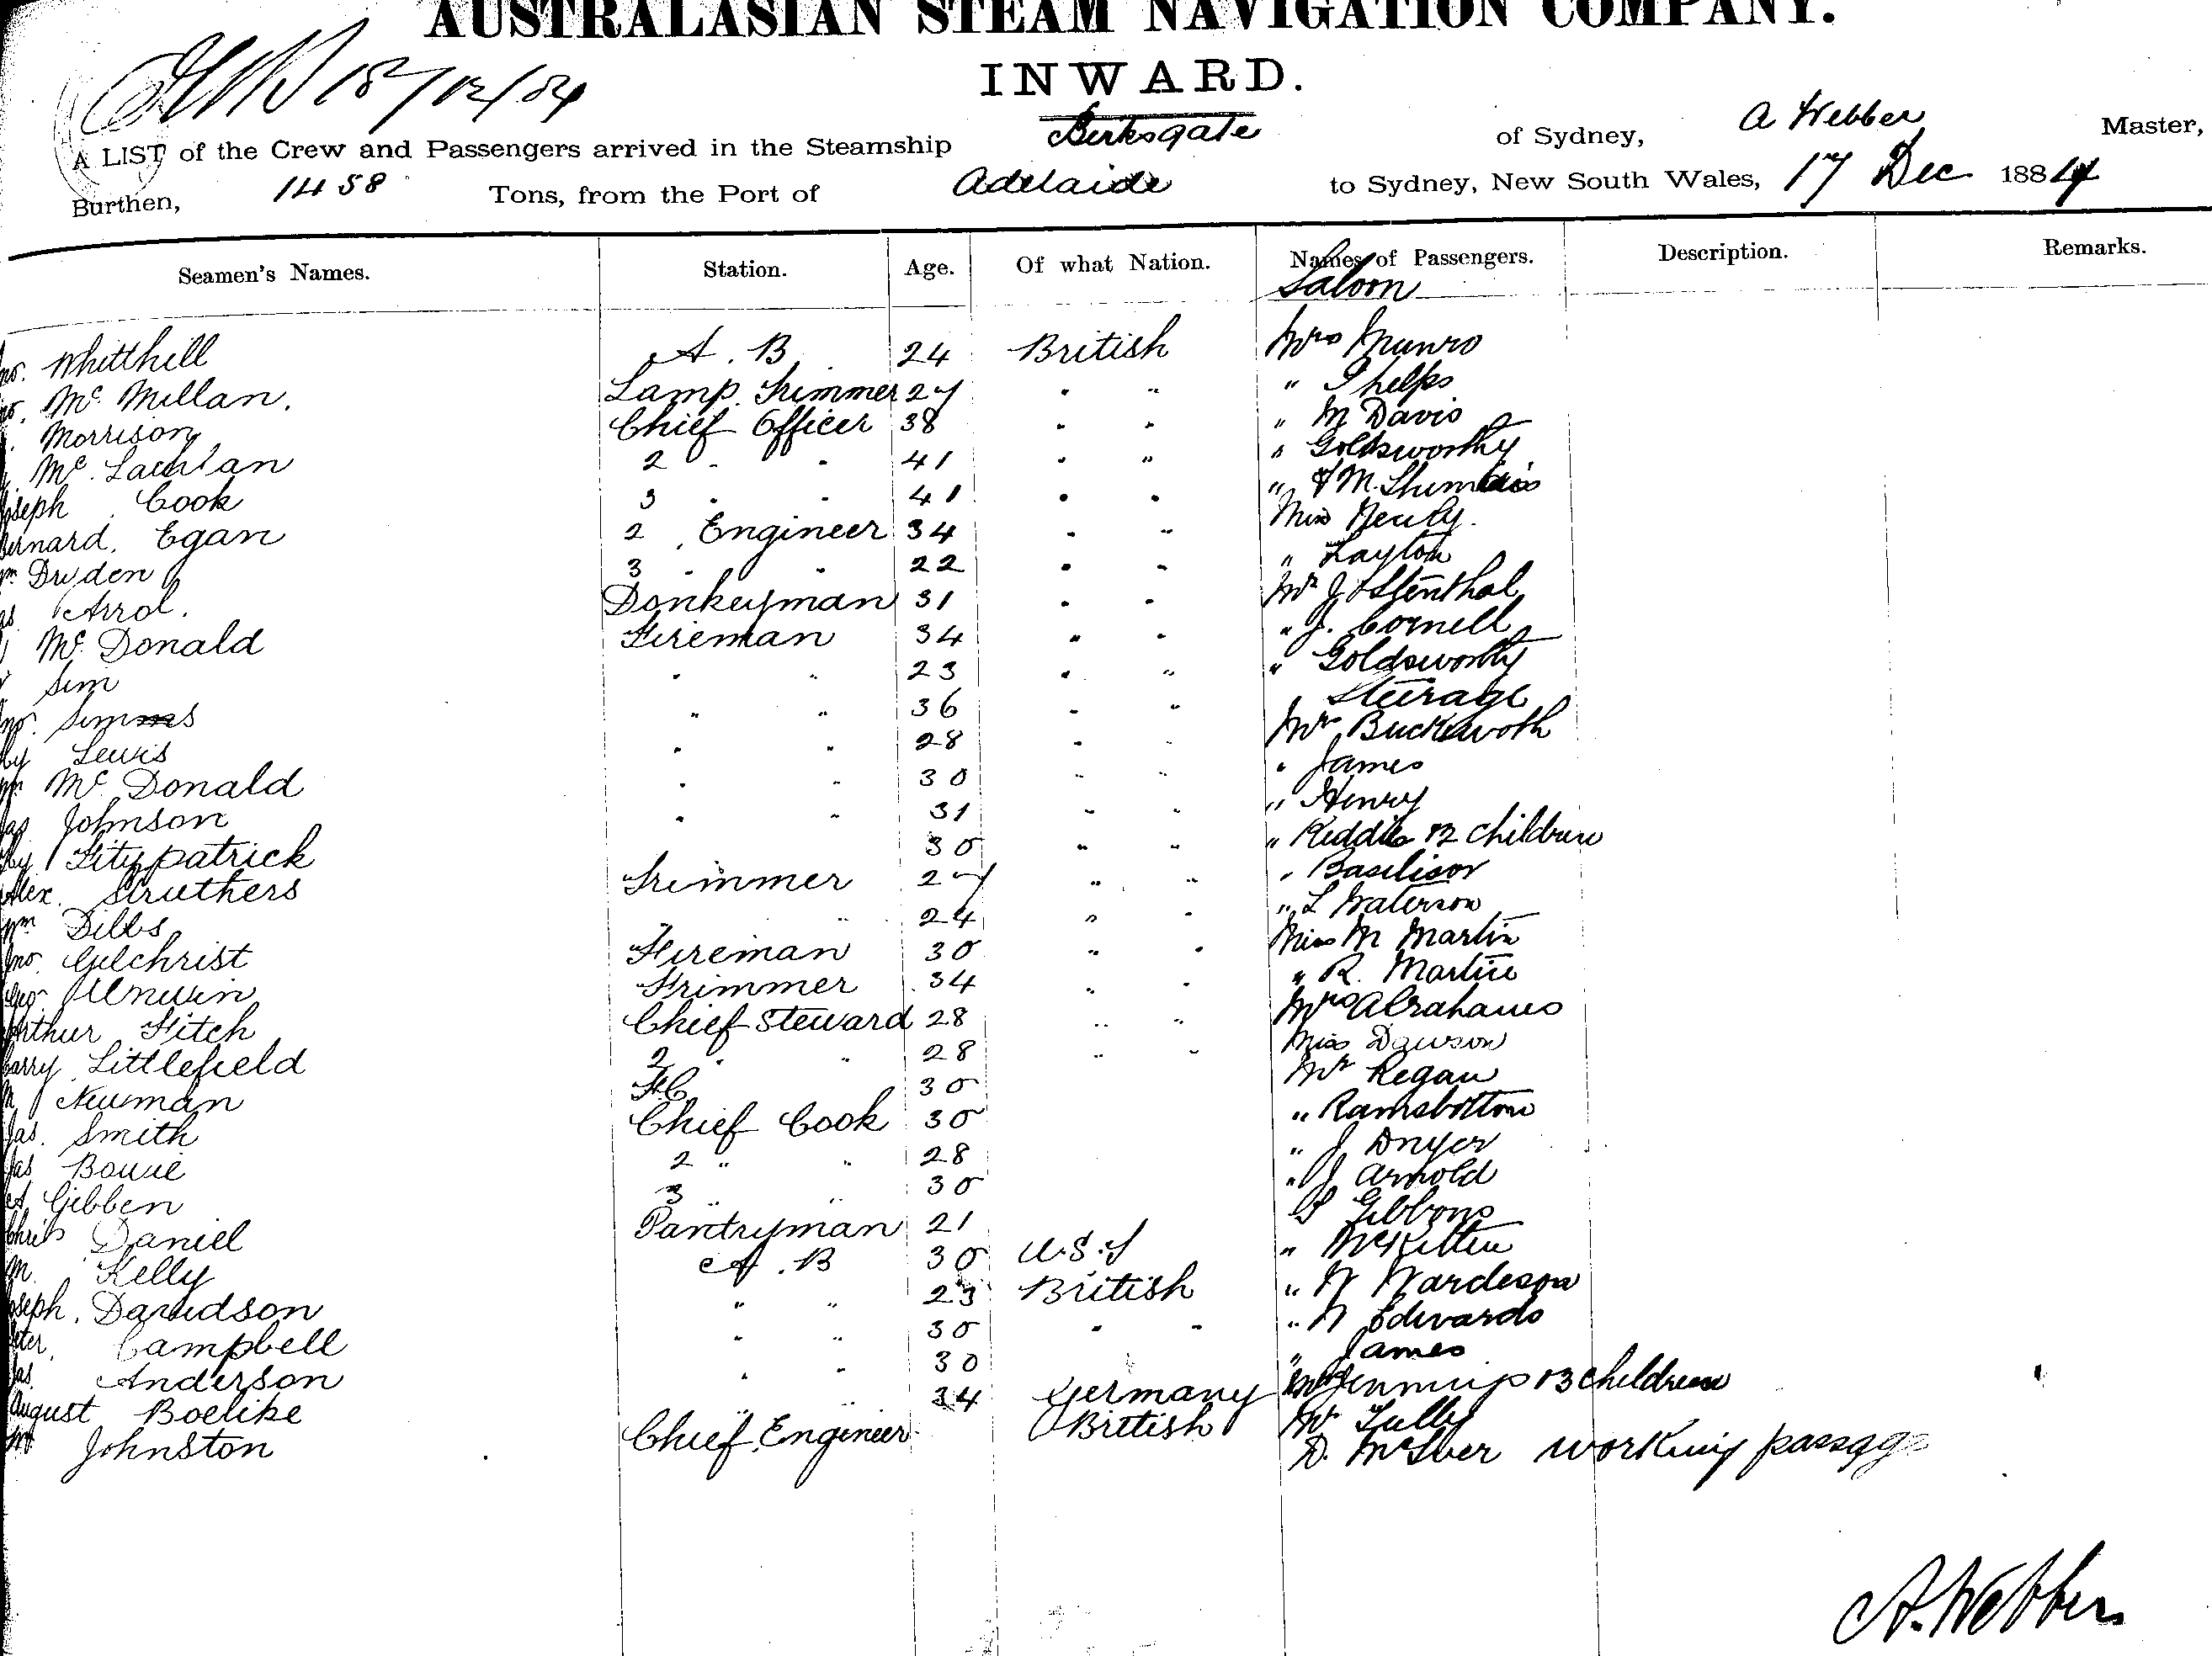 AUSTRALASIAN STEAM NAVIGATION COMPANY.
INWARD.
18/12/84
A LIST of the Crew and Passengers arrived in the Steamship Birksgate of Sydney, A Webber Master,
Burthen, 1458 Tons, from the Port of Adelaide to Sydney, New South Wales, 17 Dec 1884
Seamen's Names. Station. Age. Of what Nation. Names of Passengers. Description. Remarks.
Saloon
Whitthill A.B 24 British Mrs Munro
Mc Millan. Lamp. Trimmer 27 " " " Phelps
Morrison Chief Officer 38 " " " M Davis
Mc Lachlan 2 " " 41 " " " Goldsworthy
Joseph Cook 3 " " 41 " " "
Bernard. Egan 2 " Engineer 34 " " Miss
Dryden 3 " " 22 " " " Layton
Arrol. Donkeyman 31 " " Mr J
Mc Donald Fireman 34 " " " J. Cornell
Sim " " 23 " " " Goldsworthy
Steerage
Simms " " 36 " " Mr Buckworth
Lewis " " 28 " " " James
Mc Donald " " 30 " " " Henry
Johnson " " 31 " " " Kiddle & 2 children
Fitzpatrick 30 " " "
Alex. Struthers Trimmer 27 " " " L Waterson
Wm Dibbs " " 24 " " Miss M Martin
Jno. Gilchrist Fireman 30 " " " R. Martin
Geo. Unwin Trimmer 34 " " Mrs Abrahams
Arthur Fitch Chief Steward 28 " " Miss Dawson
Harry Littlefield 2 " " 28 " " Mr Regan
Neuman 30 " Ramsbottom
Jas. Smith Chief Cook 30 " J Dwyer
Jas Bowie 2 " " 28 " J Arnold
A Gibben 3 " " 30 Gibbons
Chris Daniel Pantryman 21 " McKitten
M. Kelly A.B 30 U.S. " W Wardespa
Joseph. Davidson " " 23 British " Edwards
Peter. Campbell " " 30 " " " James
Jas. Anderson " " 30 Jennings & 3 children
August Boelike " " 34 Germany Mr Tully
Johnston Chief Engineer British D. McIver working passage
A. Webber